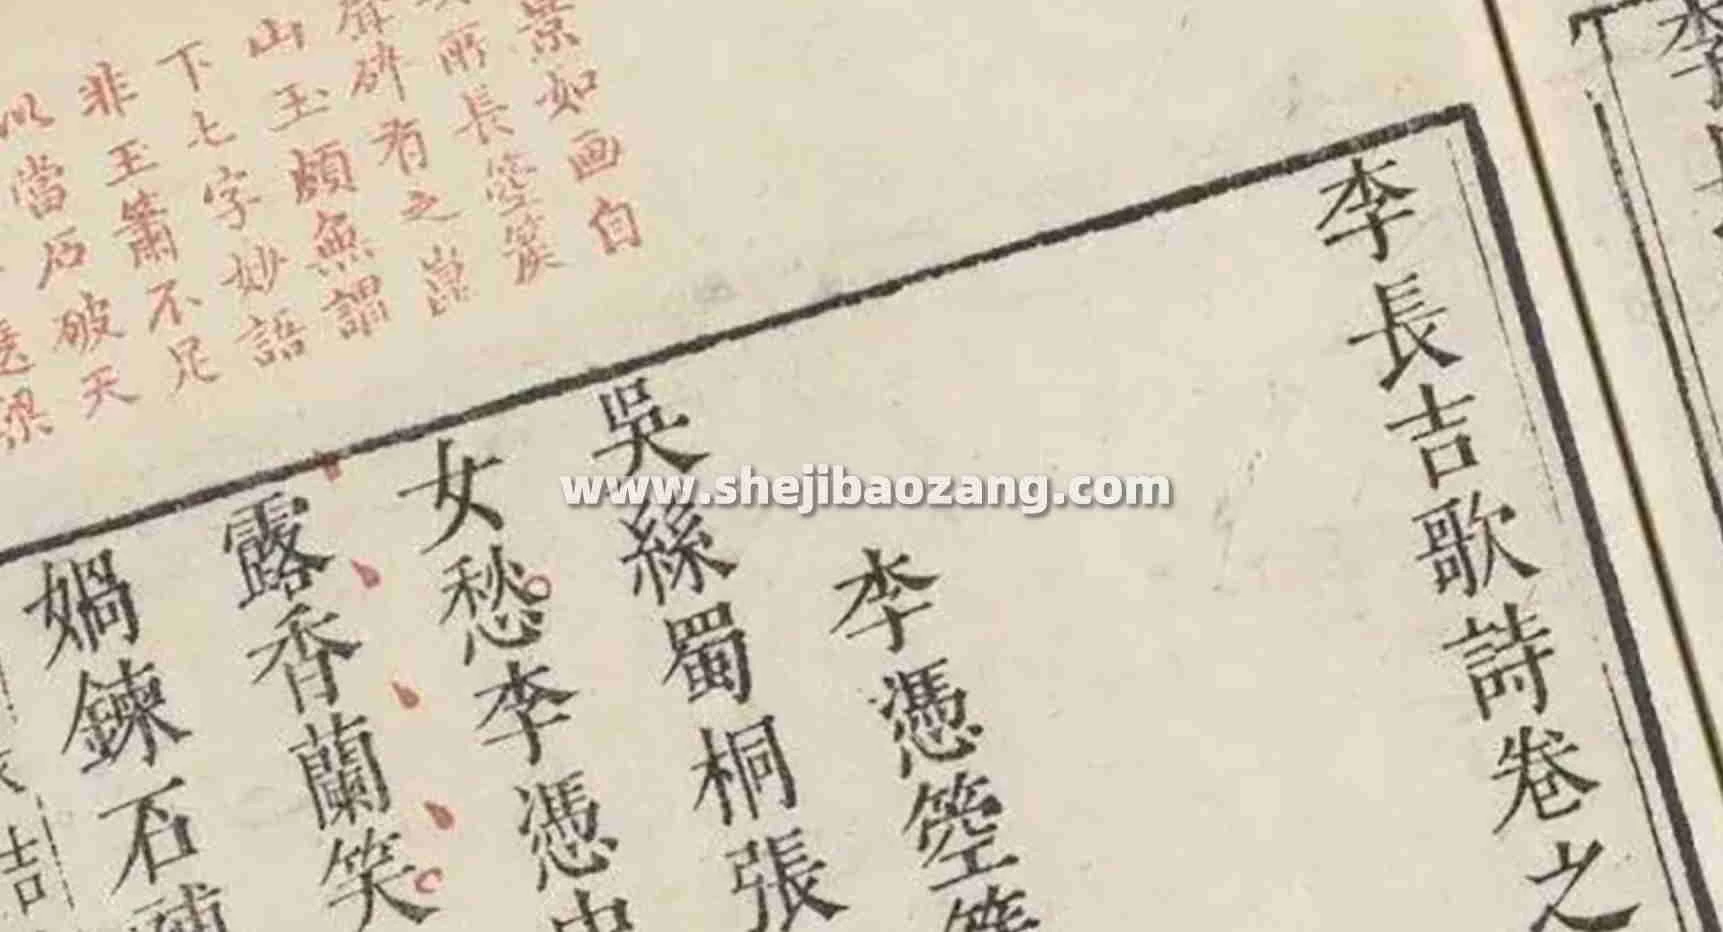 李長吉歌詩卷之
李憑箜
吳絲蜀桐張
女愁李憑中
露香蘭笑
媧鍊石補
吉
景如画自
所長箜篌
碎有之崑
山玉頗無謂
下七字妙語
非玉簫不足
以當石破天
梁
www.shejibaozang.com